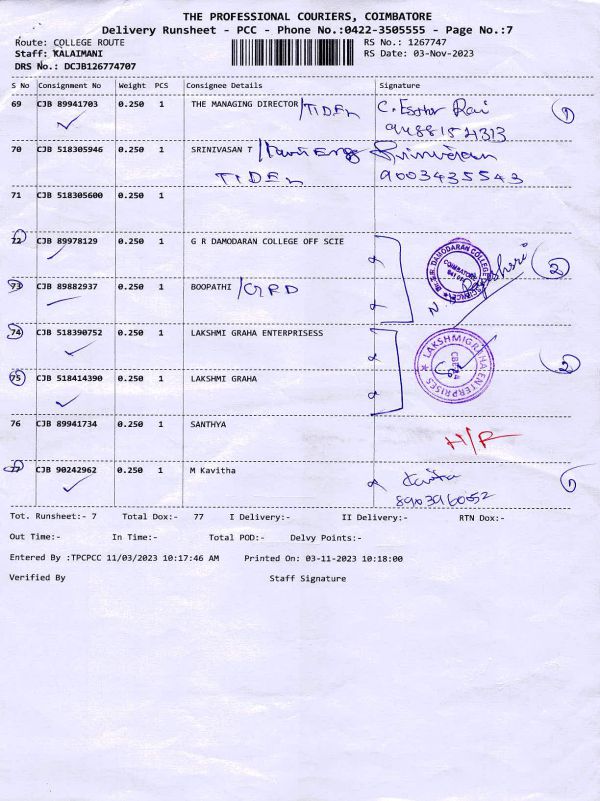 THE PROFESSIONAL COURIERS, COIMBATORE
Delivery Runsheet - PCC - Phone No.:0422-3505555 - Page No.:7
Route: COLLEGE ROUTE RS No.: 1267747
Staff: KALAIMANI RS Date: 03-Nov-2023
DRS No.: DCJB126774707
S No Consignment No Weight PCS Consignee Details Signature
69 CJB 89941703 0.250 1 THE MANAGING DIRECTOR/TIDEL C. Esther Rai 1
9488154313
70 CJB 518305946 0.250 1 SRINIVASAN T / Srinivasan
TIDEL 9003435543
71 CJB 518305600 0.250 1
72 CJB 89978129 0.250 1 G R DAMODARAN COLLEGE OFF SCIE
DAMODARAN COLLEGE COIMBATORE 2
73 CJB 89882937 0.250 1 BOOPATHI /GRD
74 CJB 518390752 0.250 1 LAKSHMI GRAHA ENTERPRISESS
LAKSHMIGRAHA ENTERPRISES 2
75 CJB 518414390 0.250 1 LAKSHMI GRAHA
76 CJB 89941734 0.250 1 SANTHYA H/R
77 CJB 90242962 0.250 1 M Kavitha Kavitha 1
8903960052
Tot. Runsheet:- 7 Total Dox:- 77 I Delivery:- II Delivery:- RTN Dox:-
Out Time:- In Time:- Total POD:- Delvy Points:-
Entered By :TPCPCC 11/03/2023 10:17:46 AM Printed On: 03-11-2023 10:18:00
Verified By Staff Signature